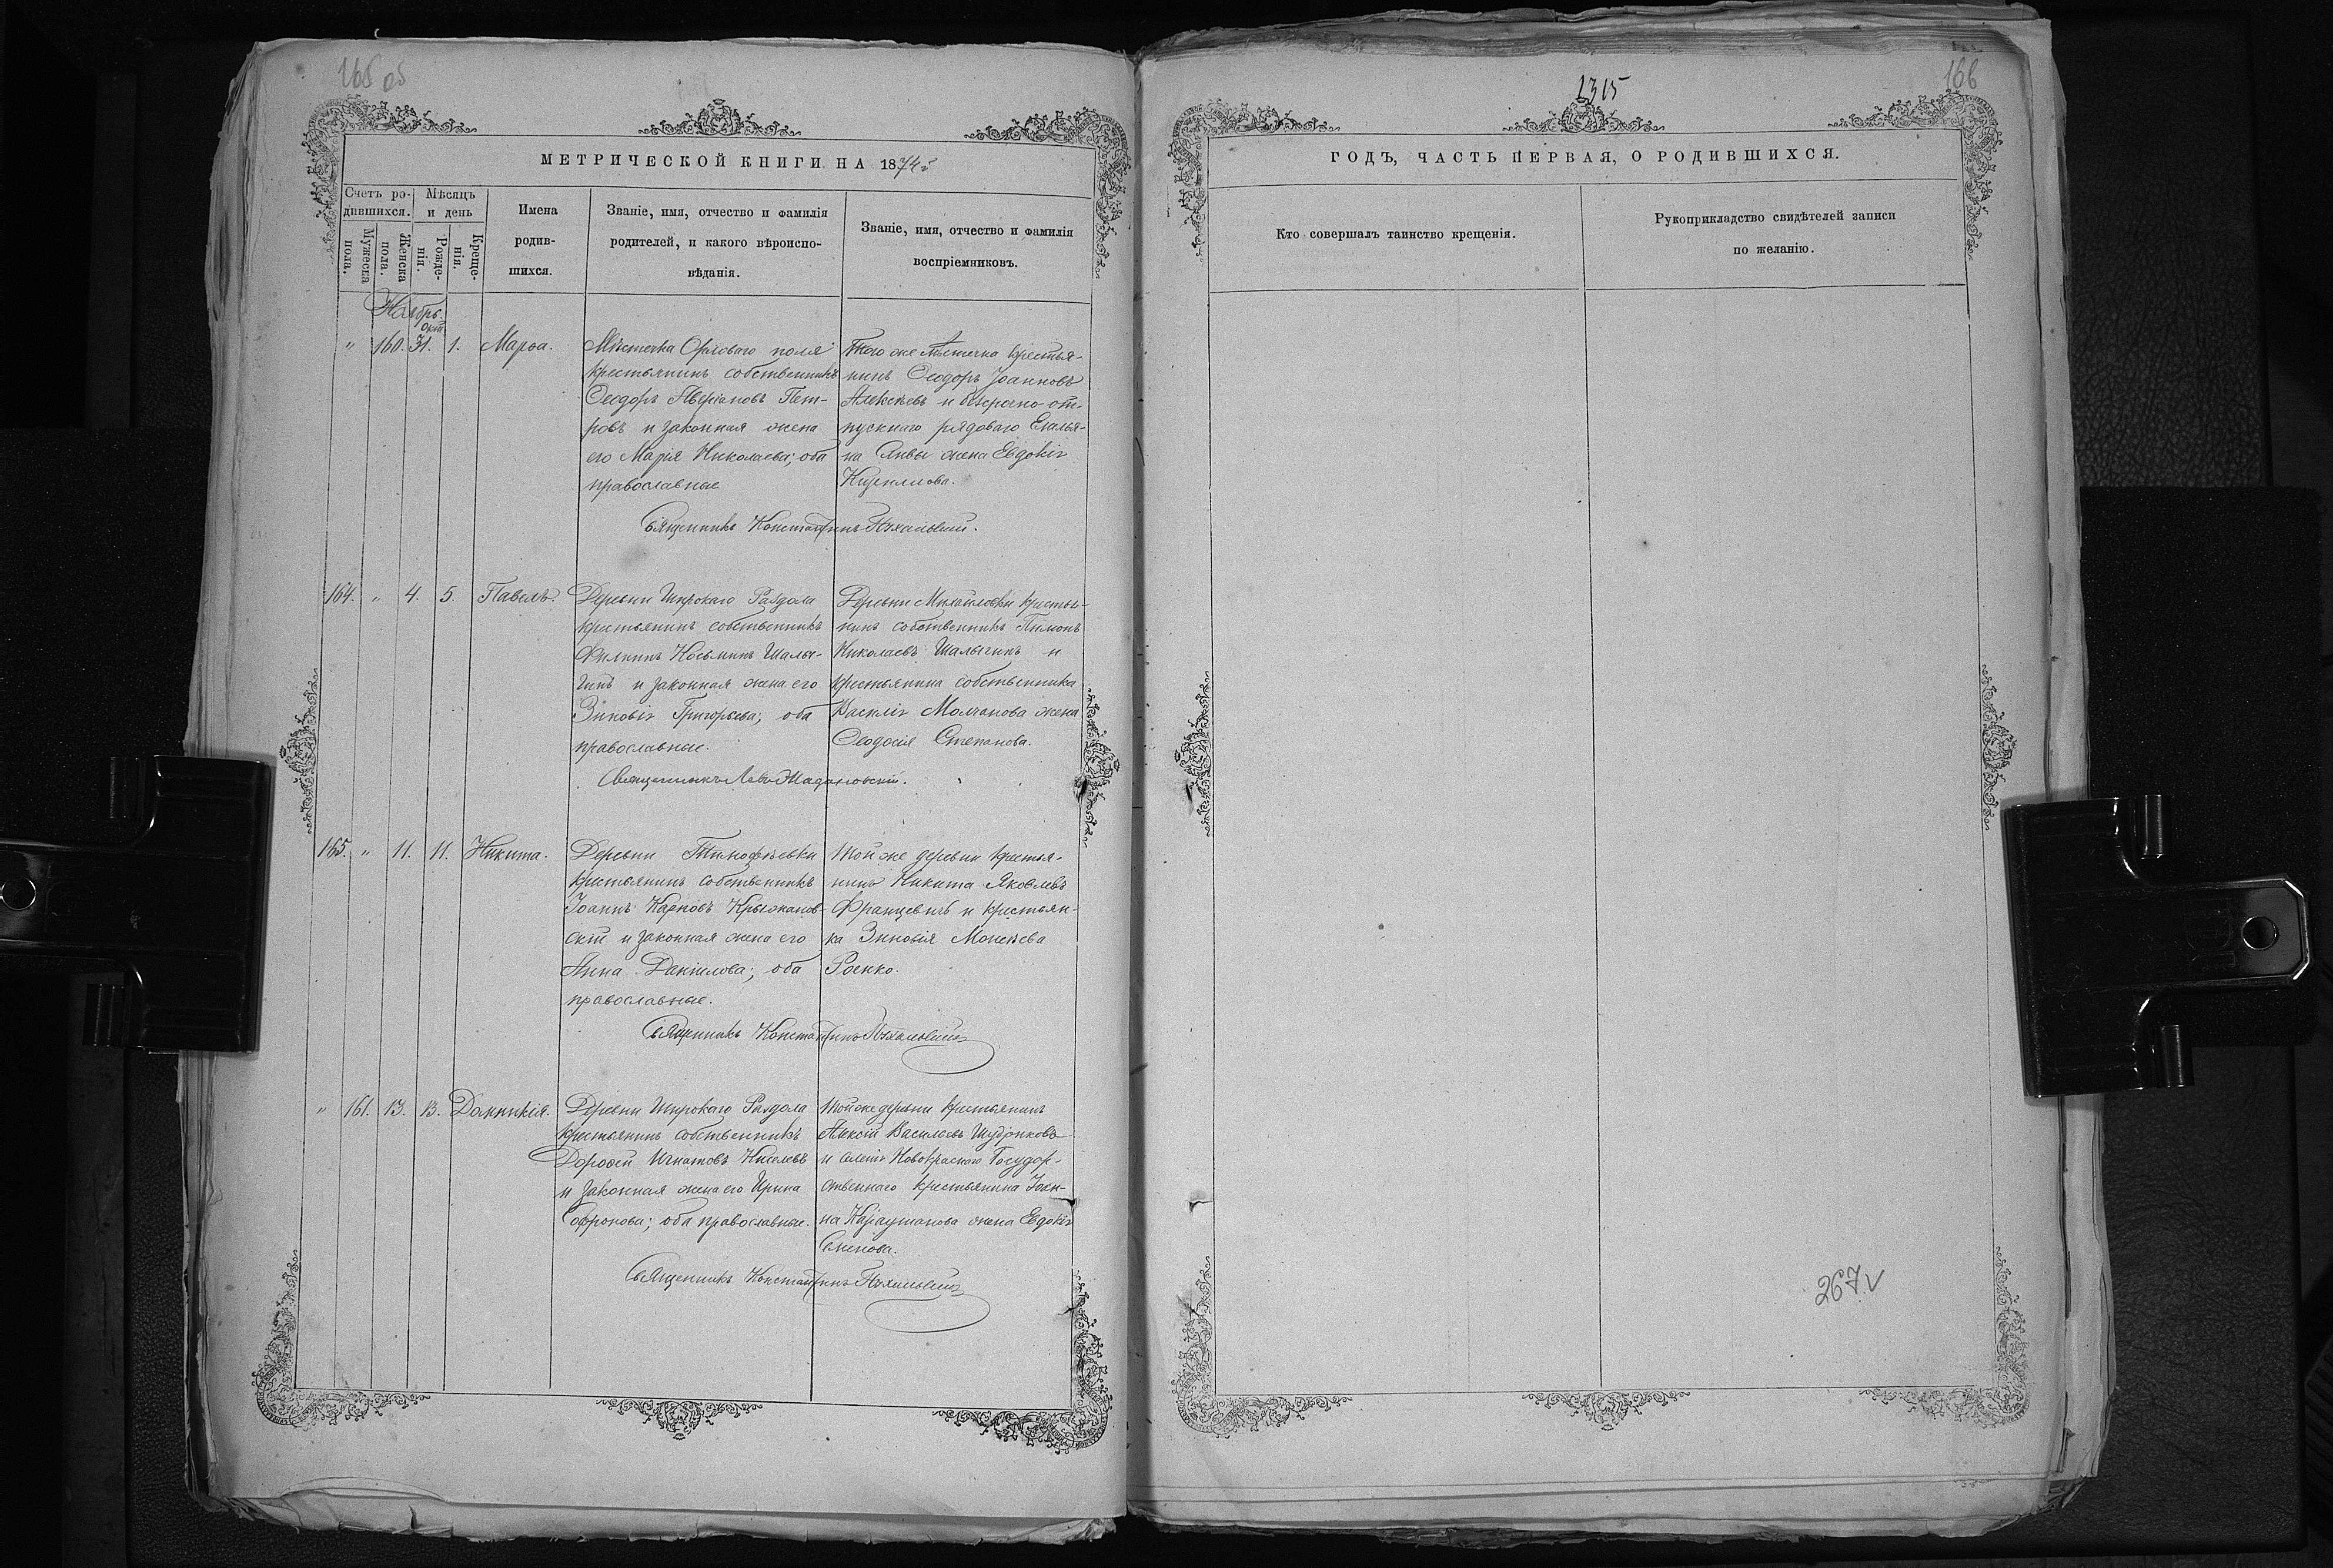 165 об
МЕТРИЧЕСКОЙ КНИГИ НА 1874й
Счетъ ро-
дившихся.
Мѣсяцъ
и день
Мужеска
пола.
Женска
пола.
Рожде-
нія.
Креще-
нія.
Имена
родив-
шихся.
Званіе, имя, отчество и фамилія
родителей, и какого вѣроиспо-
вѣданія.
Званіе, имя, отчество и фамилія
воспріемниковъ.
Ноябрь.
Окт.
" 160. 31. 1. Марѳа.
Мѣстечка Орловаго поля
крестьянинъ собственникъ
Ѳеодоръ Аверіановъ Пет-
ровъ и законная жена
его Марія Николаева; оба
православные
Того же мѣстечка крестья-
нинъ Ѳеодоръ Іоанновъ
Алексѣевъ и безсрочно-от-
пускнаго рядоваго Емелья-
на жена Евдокія
Священникъ Константинъ
164. " 4. 5. Павелъ.
Деревни Широкаго Раздола
крестьянинъ собственникъ
Филиппъ Косьминъ Шалы-
гинъ и законная жена его
Зиновія Григорьева; оба
православные.
Деревни Михайловки крестья-
нинъ собственникъ Пимонъ
Николаевъ Шалыгинъ и
крестьянина собственника
Василія Молчанова жена
Ѳеодосія Степанова.
Священникъ Левъ
165. " 11. 11. Никита.
Деревни Тимофѣевки
крестьянинъ собственникъ
Іоаннъ Карповъ Крыжанов-
скій и законная жена его
Анна Даніилова; оба
православные.
Той же деревни крестья-
нинъ Никита Яковлевъ
Францевичъ и крестьян-
ка Зиновія Моисеева
Роенко.
Священникъ Константинъ
" 161. 13. 13. Домникія.
Деревни Широкаго Раздола
крестьянинъ собственникъ
Дороѳей Игнатовъ Киселевъ
и законная жена его Ирина
Софронова; оба православные.
Той же деревни крестьянинъ
Алексій Васильевъ Шудриковъ
и селенія Новокраснаго Государ-
ственнаго крестьянина Іоан-
на Караушанова жена Евдокія
Семенова.
Священникъ Константинъ
1315
166
ГОДЪ, ЧАСТЬ ПЕРВАЯ, О РОДИВШИХСЯ.
Кто совершалъ таинство крещенія.
Рукоприкладство свидѣтелей записи
по желанію.
267 v